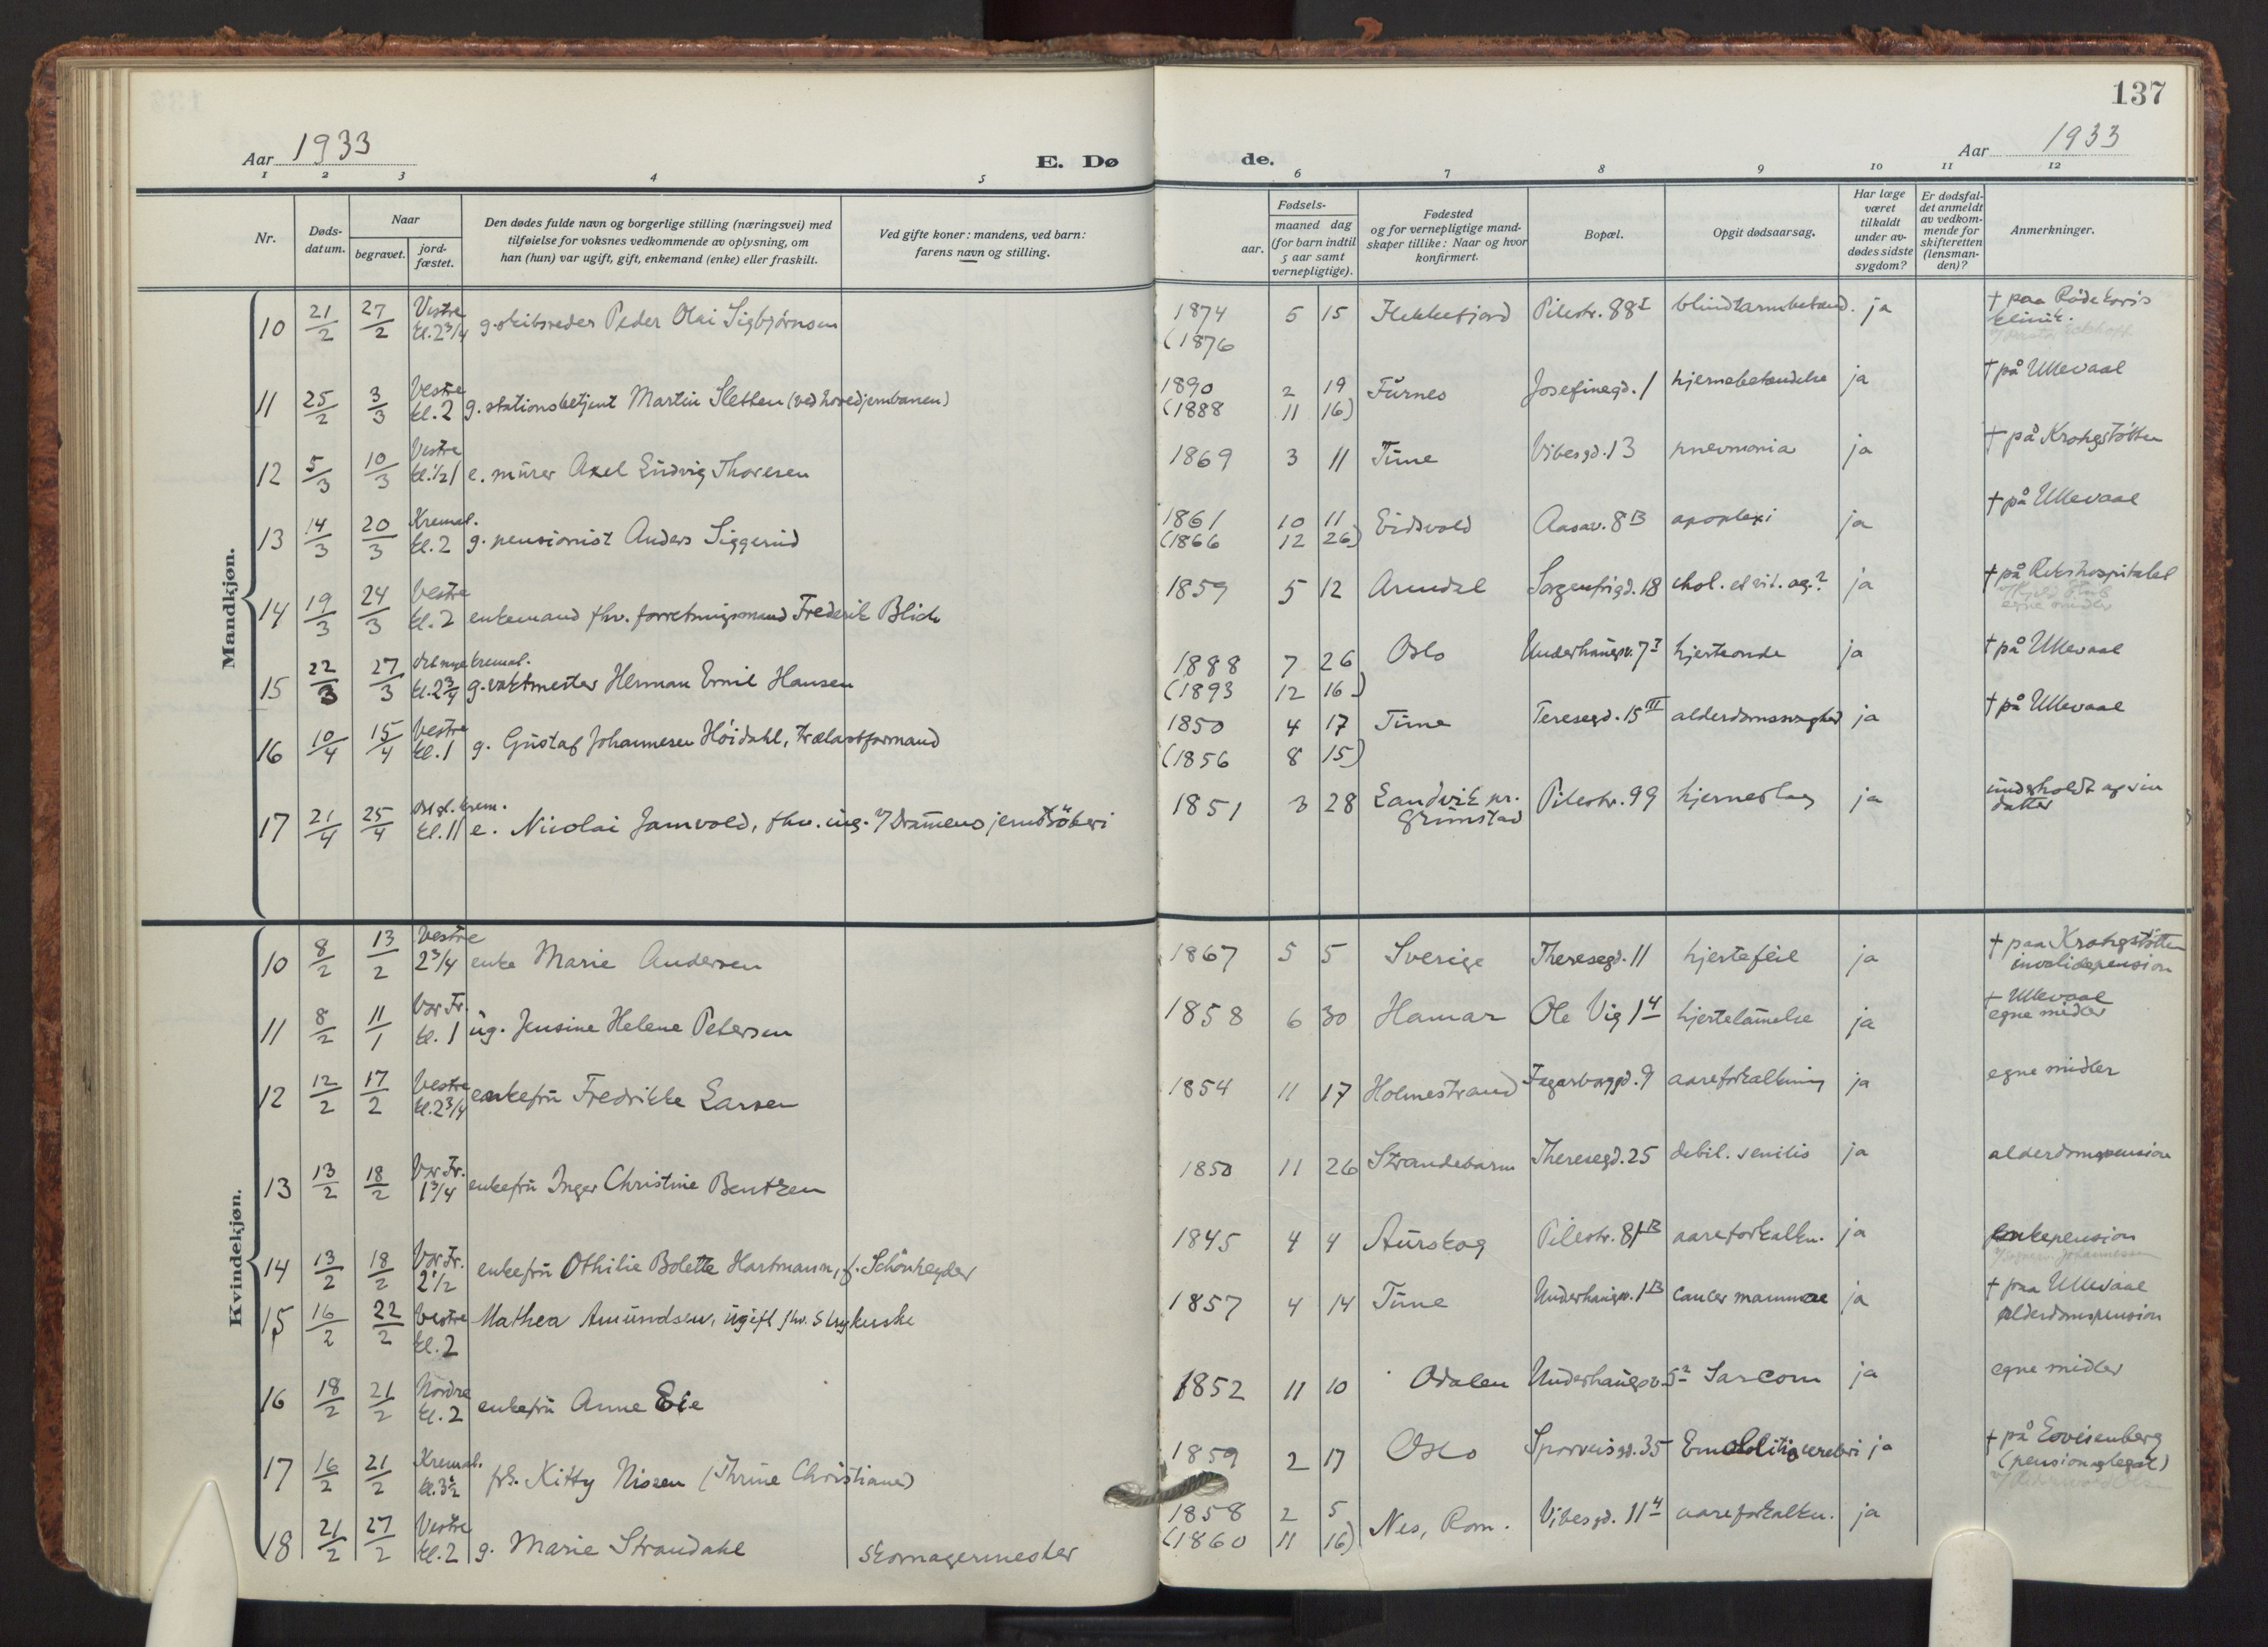 137
Aar 1933
E. Dø de.
Aar 1933
1 2 3 4 5 6 7 8 9 10 11 12
Nr.
Døds-datum.
Naar
begravet.
jord-fæstet.
Den dødes fulde navn og borgerlige stilling (næringsvei) med
tilføielse for voksnes vedkommende av oplysning, om
han (hun) var ugift, gift, enkemand (enke) eller fraskilt.
Ved gifte koner: mandens, ved barn:
farens navn og stilling.
Fødsels-
aar.
maaned dag
(for barn indtil
5 aar samt
vernepligtige).
Fødested
og for vernepligtige mand-
skaper tillike: Naar og hvor
konfirmert.
Bopæl.
Opgit dødsaarsag.
Har læge
været
tilkaldt
under av-
dødes sidste
sygdom?
Er dødsfal-
det anmeldt
av vedkom-
mende for
skifteretten
(lensman-
den)?
Anmerkninger.
Mandkjøn.
10 21/2 27/2 Vestre kl. 2 3/4 g. skibsreder Peder Olai Sigbjørnsen 1874 5 15 Flekkefjord Pilestr. 88 I blindtarmbetænd. ja † paa Røde kors klinik.
(1876
11 25/2 3/3 Vestre kl. 2 g. stationsbetjent Martin Slethen (ved hovedjernbanen) 1890 2 19 Furnes Josefinegd. 1 hjernebetændelse ja † på Ullevaal
(1888 11 16)
12 5/3 10/3 Vestre kl. 1/2 1 e. murer Axel Ludvig Thoresen 1869 3 11 Tune Vibesgd. 13 pneumonia ja † på Krohgstøtten
13 14/3 20/3 Kremat. kl. 2 g. pensionist Anders Siggerud 1861 10 11 Eidsvold Aasav. 8 B apoplexi ja † på Ullevaal
(1866 12 26)
14 19/3 24/3 Vestre kl. 2 enkemand fhv. forretningsmand Frederik Blich 1859 5 12 Arendal Sorgenfrigd. 18 chol. et vit. ag.? ja † på Rikshospitalet
egne midler
15 22/3 27/3 Det nye kremat. kl. 2 3/4 g. vaktmester Herman Emil Hansen 1888 7 26 Oslo Underhaugsv. 7 I hjerteonde ja † på Ullevaal
(1893 12 16)
16 10/4 15/4 Vestre kl. 1 g. Gustaf Johannesen Høidahl, trælastformand 1850 4 17 Tune Teresegd. 15 III alderdomssvaghed ja † på Ullevaal
(1856 8 15)
17 21/4 25/4 Det gl. krem. kl. 11 e. Nicolai Jamvold, fhv. ing. v/ Dramens jernstøberi 1851 3 28 Landvik pr. Grimstad Pilestr. 99 hjerneslag ja underholdt av sin datter
Kvindekjøn.
10 8/2 13/2 Vestre 2 3/4 enke Marie Andersen 1867 5 5 Sverige Theresegd. 11 hjertefeil ja † paa Krohgstøtten invalidepension
11 8/2 11/1 Vor Fr. kl. 1 ug. Jensine Helene Petersen 1858 6 30 Hamar Ole Vig 14 hjertelamelse ja † Ullevaal egne midler
12 12/2 17/2 Vestre kl. 2 3/4 enkefru Fredrikke Larsen 1854 11 17 Holmestrand Fagerborggd. 9 aareforkalkning ja egne midler
13 13/2 18/2 Vor Fr. 1 3/4 enkefru Inger Christine Bentzen 1850 11 26 Strandebarm Theresegd. 25 debil. senilis ja alderdomspension
14 13/2 18/2 Vor Fr. 2 1/2 enkefru Othilie Bolette Hartmann, f. Schönheyder 1845 4 4 Aurskog Pilestr. 81 B aareforkalkn. ja enkepension
15 16/2 22/2 Vestre kl. 2 Mathea Amundsen, ugift fhv. strykerske 1857 4 14 Tune Underhaugsv. 1 B cancer mammae ja † paa Ullevaal alderdomspension
16 18/2 21/2 Nordre kl. 2 enkefru Anne Eie 1852 11 10 Odalen Underhaugsv. 5 2 Sarcom ja egne midler
17 16/2 21/2 Kremat. kl. 3 1/2 frk. Kitty Nissen (Thrine Christiane) 1859 2 17 Oslo Sporveisgd. 35 ja † på Lovisenberg (pension og legat)
18 21/2 27/2 Vestre kl. 2 g. Marie Strandahl skomagermester 1858 2 5 Nes, Rom. Vibesgd. 11 4 aareforkalkn. ja
(1860 11 16)